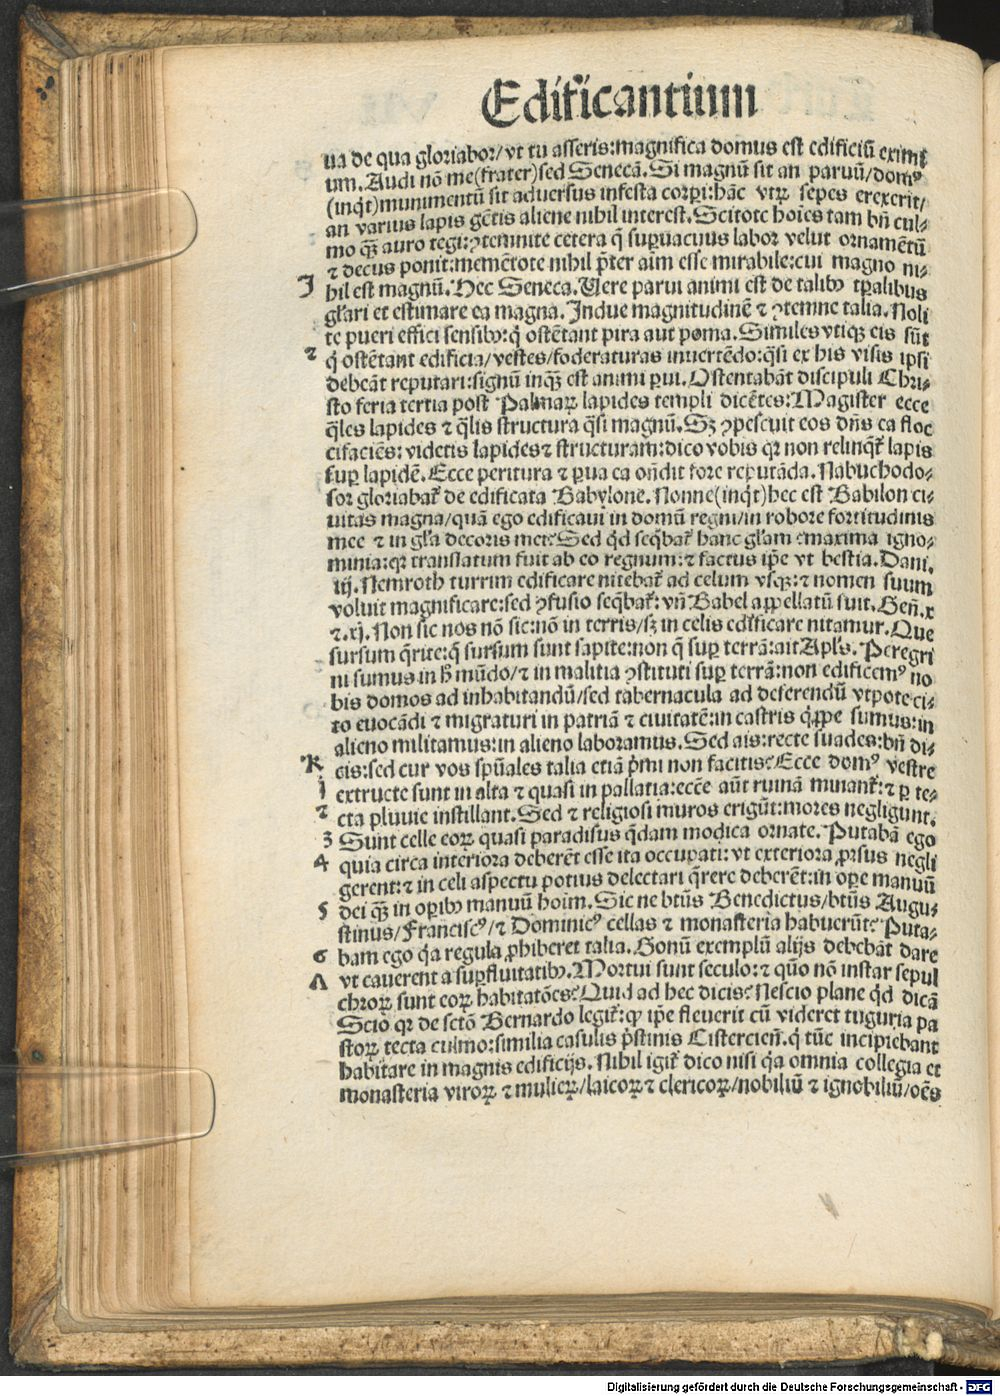 Edificantium
ua de qua gloriabor/vt tu asseris:magnifica domus est edificiū eximi
um. Audi nō me(frater)sed Senecā. Si magnū sit an paruū/domꝰ
(inq̄t)munimentū sit aduersus infesta corꝑi:hāc vtꝝ sepes erexerit/
an varius lapis gētis aliene nihil interest. Scitote hoīes tam bn̄ cul-
mo qꝫ auro tegi:ꝯtemnite cetera q̄ suꝑuacuus labor velut ornamētū
⁊ decus ponit:memētote nihil p̄ter aīm esse mirabile:cui magno ni-
J hil est magnū. Hec Seneca. Uere parui animi est de talibꝰ tꝑalibus
gl̄ari et estimare ea magna. Indue magnitudinē ⁊ ꝯtemne talia. Noli
te pueri effici sensibꝰ:q̄ ostētant pira aut poma. Similes vtiqꝫ eis sūt
2 q̄ ostētant edificia/vestes/foderaturas inuertēdo:q̄si ex his visis ipsi
debeāt reputari:signū inqꝫ est animi ꝑui. Ostentabāt discipuli Chri-
sto feria tertia post Palmaꝝ lapides templi dicētes:Magister ecce
q̄les lapides ⁊ q̄lis structura q̄si magnū. Sꝫ ꝯpescuit eos dn̄s ea floc
cifaciēs: videtis lapides ⁊ structuram:dico vobis qꝛ non relinq̄t̄ lapis
suꝑ lapidē. Ecce peritura ⁊ ꝑua ea on̄dit fore reputāda. Nabuchodo-
sor gloriabat̄ de edificata Babylone. Nonne(inq̄t)hec est Babilon ci-
uitas magna/quā ego edificaui in domū regni/in robore fortitudinis
mee ⁊ in gl̄ia decoris mei? Sed qd̄ seq̄bat̄ hanc gl̄am? maxima igno-
minia:qꝛ translatum fuit ab eo regnum:⁊ factus ip̄e vt bestia. Dani.
iij. Nemroth turrim edificare nitebat̄ ad celum vsqꝫ:⁊ nomen suum
voluit magnificare:sed ꝯfusio seq̄bat̄: vn̄ Babel appellatū fuit. Gen̄.x
⁊.xj. Non sic nos nō sic:nō in terris/sꝫ in celis edificare nitamur. Que
sursum q̄rite:q̄ sursum sunt sapite:non q̄ suꝑ terrā:ait Apl's. Peregri
ni sumus in h̄ mūdo/⁊ in malitia ꝯstituti suꝑ terrā:non edificemꝰ no
bis domos ad inhabitandū/sed tabernacula ad deserendū vtpote ci-
to euocādi ⁊ migraturi in patriā ⁊ ciuitatē:in castris q̄ppe sumus:in
alieno militamus:in alieno laboramus. Sed ais:recte suades:bn̄ di-
K cis:sed cur vos spūales talia etiā p̄mi non facitis? Ecce domꝰ vestre
1 extructe sunt in alta ⁊ quasi in pallatia:ecc̄e aūt ruinā minant̄:⁊ ꝑ te-
2 cta pluuie instillant. Sed ⁊ religiosi muros erigūt:mores negligunt.
3 Sunt celle eoꝝ quasi paradisus q̄dam modica ornate. Putabā ego
4 quia circa interiora deberēt esse ita occupati: vt exteriora ꝓrsus negli
gerent:⁊ in celi aspectu potius delectari q̄rere deberēt:in oꝑe manuū
5 dei qꝫ in oꝑibꝰ manuū hoīm. Sic ne bt̄us Benedictus/bt̄us Augu-
stinus/Franciscꝰ/⁊ Dominicꝰ cellas ⁊ monasteria habuerūt? Puta-
6 bam ego q̄a regula ꝓhiberet talia. Bonū exemplū alijs debebāt dare
7 vt cauerent a suꝑfluitatibꝰ. Mortui sunt seculo:⁊ quō nō instar sepul
chroꝝ sunt eoꝝ habitatōes? Quid ad hec dicis? Nescio plane qd̄ dicā
Scio qꝛ de sctō Bernardo legit̄:qꝙ ip̄e fleuerit cū videret tuguria pa
stoꝝ tecta culmo:similia casulis p̄stinis Cistercien̄. q̄ tūc incipiebant
habitare in magnis edificijs. Nihil igit̄ dico nisi q̄a omnia collegia et
monasteria viroꝝ ⁊ mulieꝝ/laicoꝝ ⁊ clericoꝝ/nobiliū ⁊ ignobiliū/oēs
Digitalisierung gefördert durch die Deutsche Forschungsgemeinschaft - DFG